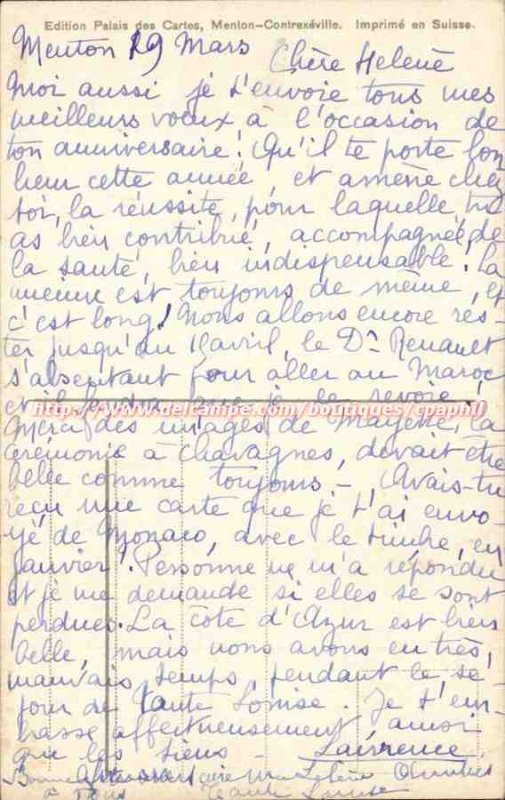 Edition Palais des Cartes, Menton-Contrexéville. Imprimé en Suisse.
Menton 29 Mars
Chère Helenè
Moi aussi je t'envoie tous mes
meilleurs vœux à l'occasion de
ton anniversaire! Qu'il te porte bon
heur cette année, et amène chez
toi, la réussite, pour laquelle, tu
as bien contribué, accompagnée de
la santé, bien indispensable. La
mienne est toujours de même, et
c'est long! Nous allons encore res-
ter jusqu'au avril, le Dr Renault
s'absentant pour aller au Maroc
et il faudra que je le revoie.
http://www.delcampe.com/boutiques/cpaphil/
Merci des images de Mayette, la
cérémonie à Chavagnes, devait être
belle comme toujours. - Avais-tu
reçu une carte que je t'ai envo-
yé de Monaco, avec le timbre, en
janvier? Personne ne m'a répondu
et je me demande si elles se sont
perdues. La côte d'Azur est bien
belle, mais nous avons eu très,
mauvais temps, pendant le sé-
jour de Tante Louise. Je t'em-
brasse affectueusement, ainsi
que les tiens - Laurence
Bonne anniversaire
à Tous Tante Louise